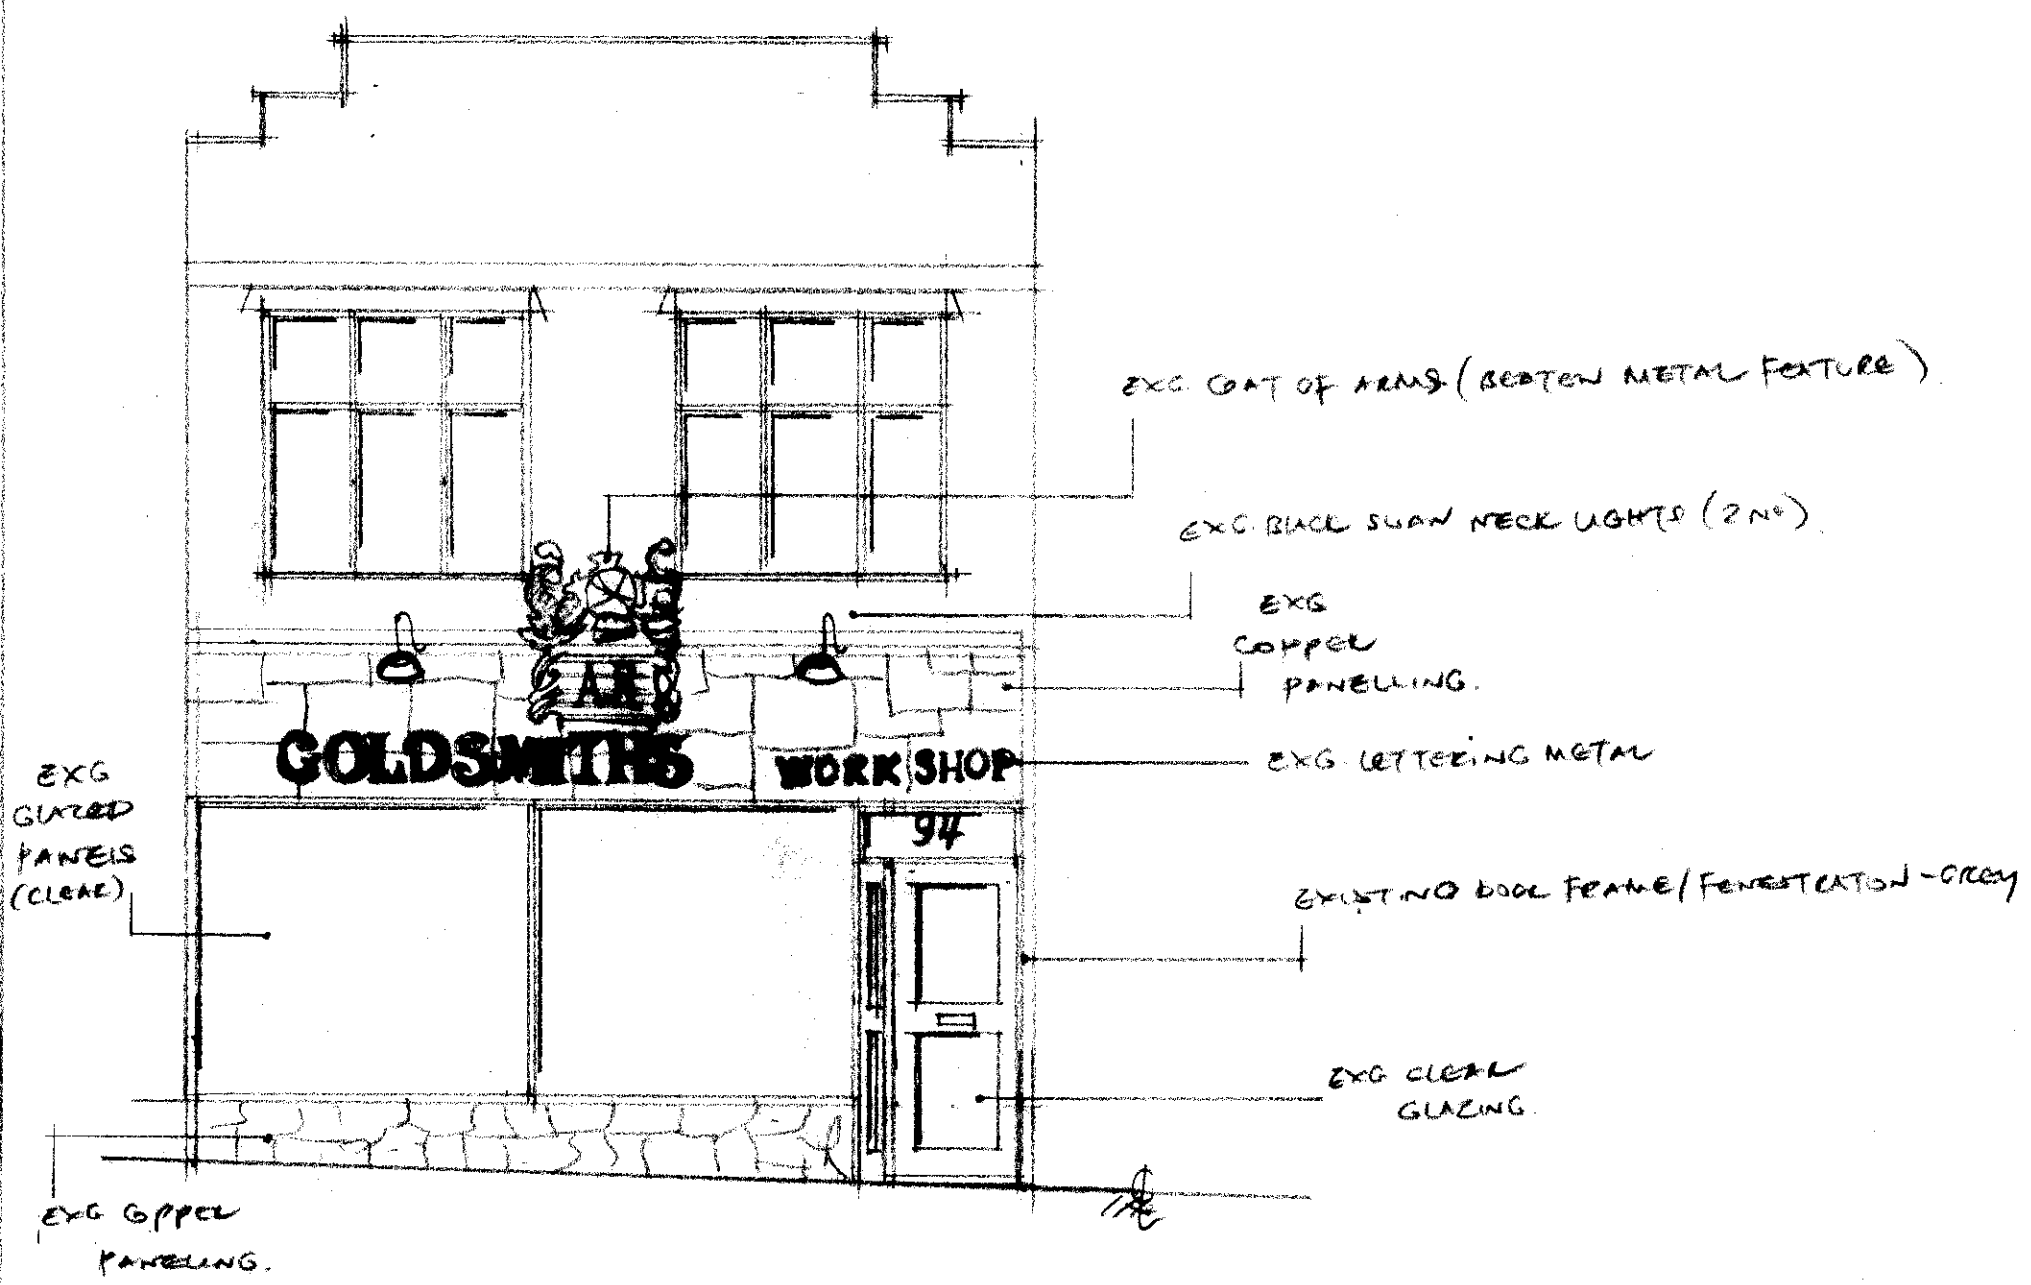 EXG. COAT OF ARMS (BEATEN METAL FEATURE)
EXG. BLACK SWAN NECK LIGHTS (2 NO)
EXG
COPPER
PANELLING.
GOLDSMITHS WORKSHOP
EXG LETTERING METAL
EXG
GLAZED
PANELS
(CLEAR)
94
EXISTING DOOR FRAME/FENESTRATION - GREY
EXG CLEAR
GLAZING.
EXG COPPER
PANELLING.